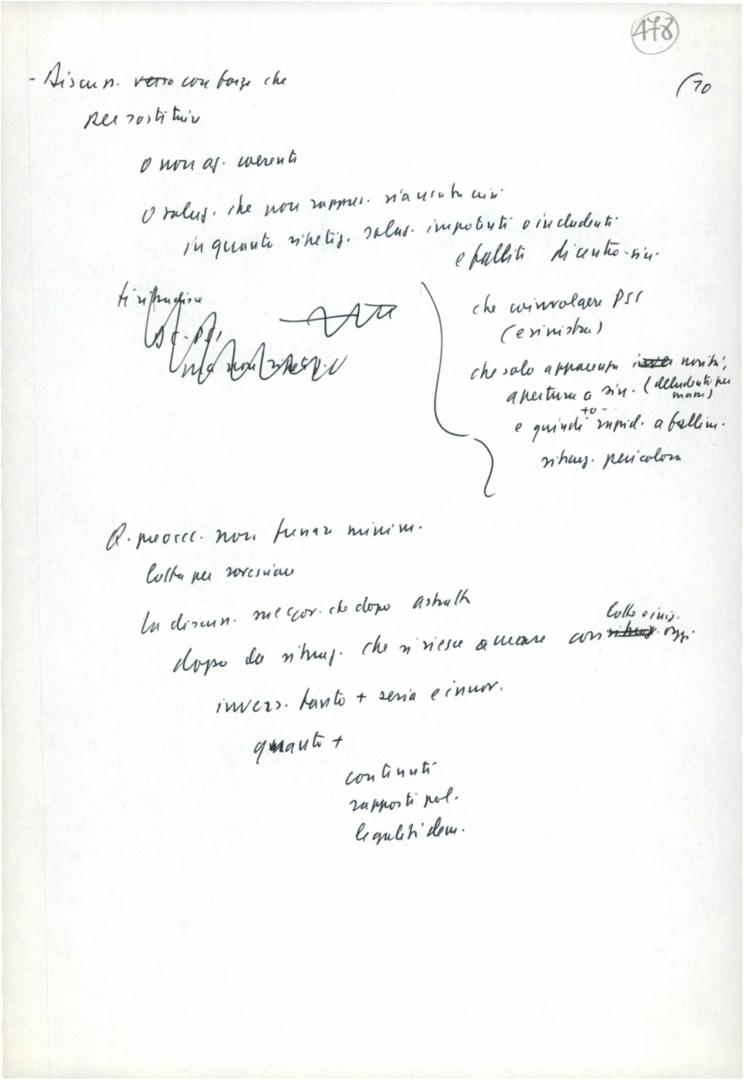 478
(70
- Discuss. verso con forze che
per sostituire
o non og. coerenti
o soluz. che non rappres. ri
in quanto ripetiz. soluz. impotenti o includenti
e falliti di centro-sin.
che coinvolgere PSI
(e sinistra)
che solo apparente novità,
apertura a sin. (deludenti per
masse)
e quindi rapid. a fallim.
situaz. pericolosa
DC-PSI
ma non
Q. preocc. non frenare minim.
lotta per
La discuss. sul gov. che dopo astratta
dopo da situaz. che si riesce a creare con lotte e iniz. oggi.
invece tanto + seria e
quanto +
contenuti
rapporti pol.
legalità dem.